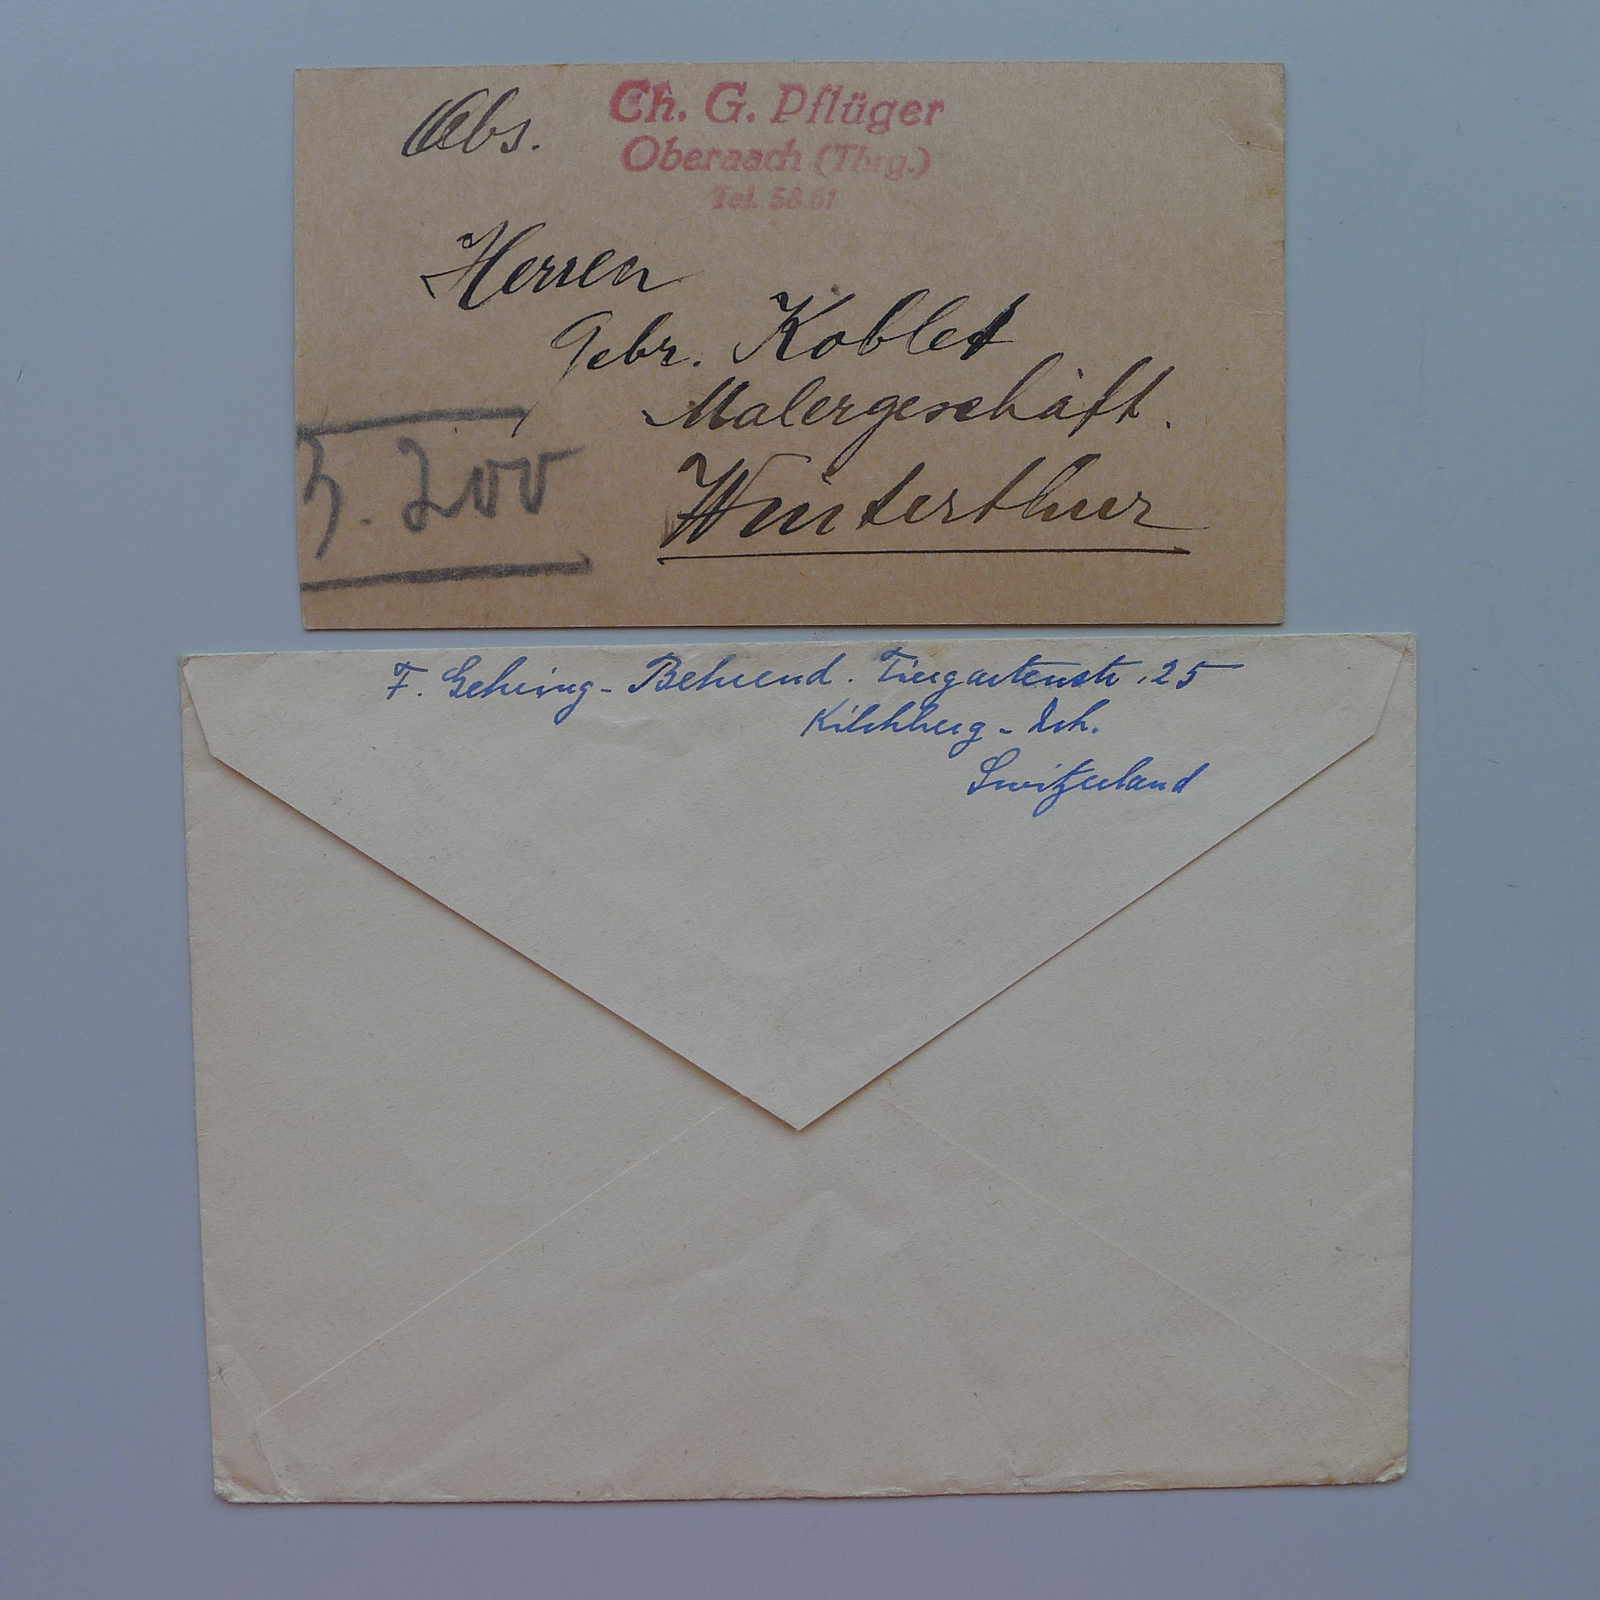 Abs. Ch. G. Pflüger
Oberaach (Thrg.)
Tel. 58.61
Herren
Gebr. Koblet
Malergeschäft.
Winterthur
200
F. Gehring-Behrend. Tiergartenstr. 25
Kilchberg-Zch.
Switzerland